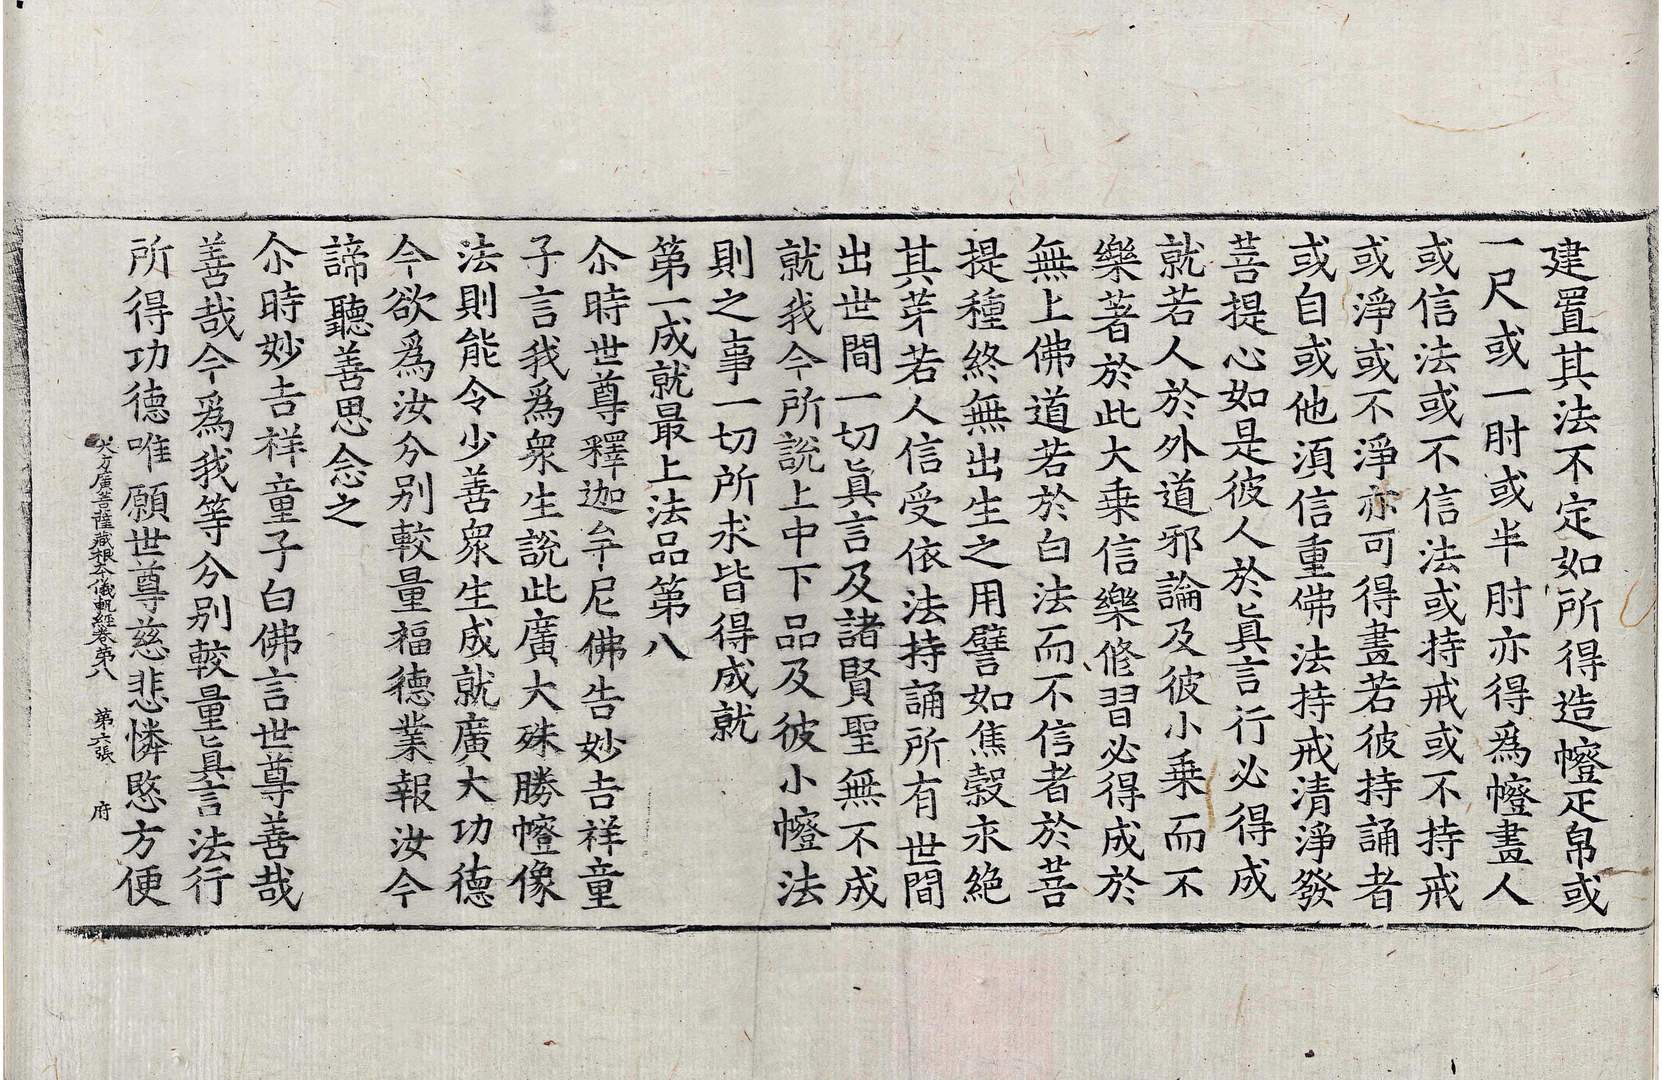 建置其法不定如所得造㡧疋帛或
一尺或一肘或半肘亦得爲㡧畫人
或信法或不信法或持戒或不持戒
或淨或不淨亦可得畫若彼持誦者
或自或他湏信重佛法持戒清淨發
菩提心如是彼人於眞言行必得成
就若人於外道邪論及彼小乗而不
樂著於此大乗信樂修習必得成於
無上佛道若於白法而不信者於菩
提種終無出生之用譬如焦穀永絶
其芽若人信受依法持誦所有世間
出世間一切眞言及諸賢聖無不成
就我今所說上中下品及彼小㡧法
則之事一切所求皆得成就
第一成就最上法品第八
尒時世尊釋迦牟尼佛告妙吉祥童
子言我爲衆生說此廣大殊勝㡧像
法則能令少善衆生成就廣大功德
今欲爲汝分別較量福德業報汝今
諦聽善思念之
尒時妙吉祥童子白佛言世尊善哉
善哉今爲我等分別較量眞言法行
所得功德唯願世尊慈悲憐愍方便
大方廣菩薩藏根本儀軌經卷第八 第六張 府